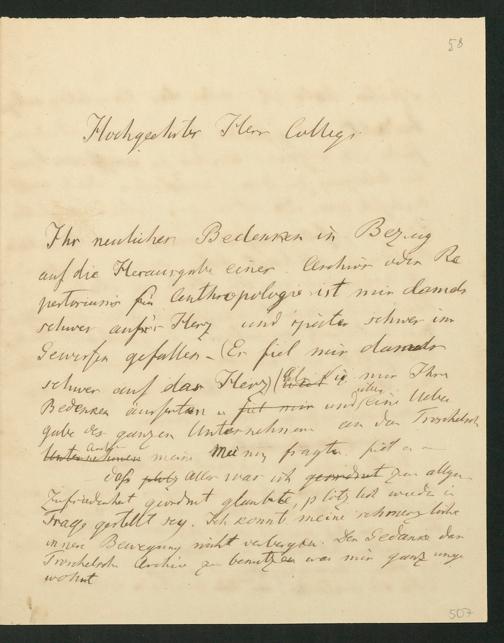 58
Hochgeehrter Herr College
Ihr neulicher Bedenken in Bezug
auf die Herausgabe einer Archivs oder Re
pertoriums für Anthropologie ist mir damals
schwer aufs Herz und später schwer im
Gewissen gefallen – (Er fiel mir damals
schwer auf das Herz) (als Sie mir Ihre
Bedenken äusserten u fiel mir und eine Ueber
gabe des ganzen Unternehmens an das Troschelsche
Unternehmen meine Meinung fragten. fiel
daß plötz Alles was ich geordnet zu allge
Zufriedenheit geordnet glaubte, plötzlich wieder in
Frage gestellt sey. Ich konnte meine schmerzliche
innere Bewegung nicht verbergen. Der Gedanke das
Troschelsche Archiv zu benutzen war mir ganz unge
wohnt
507